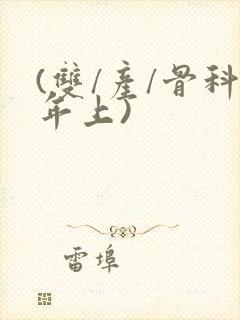 (雙/產/骨科
年上)
雷埠